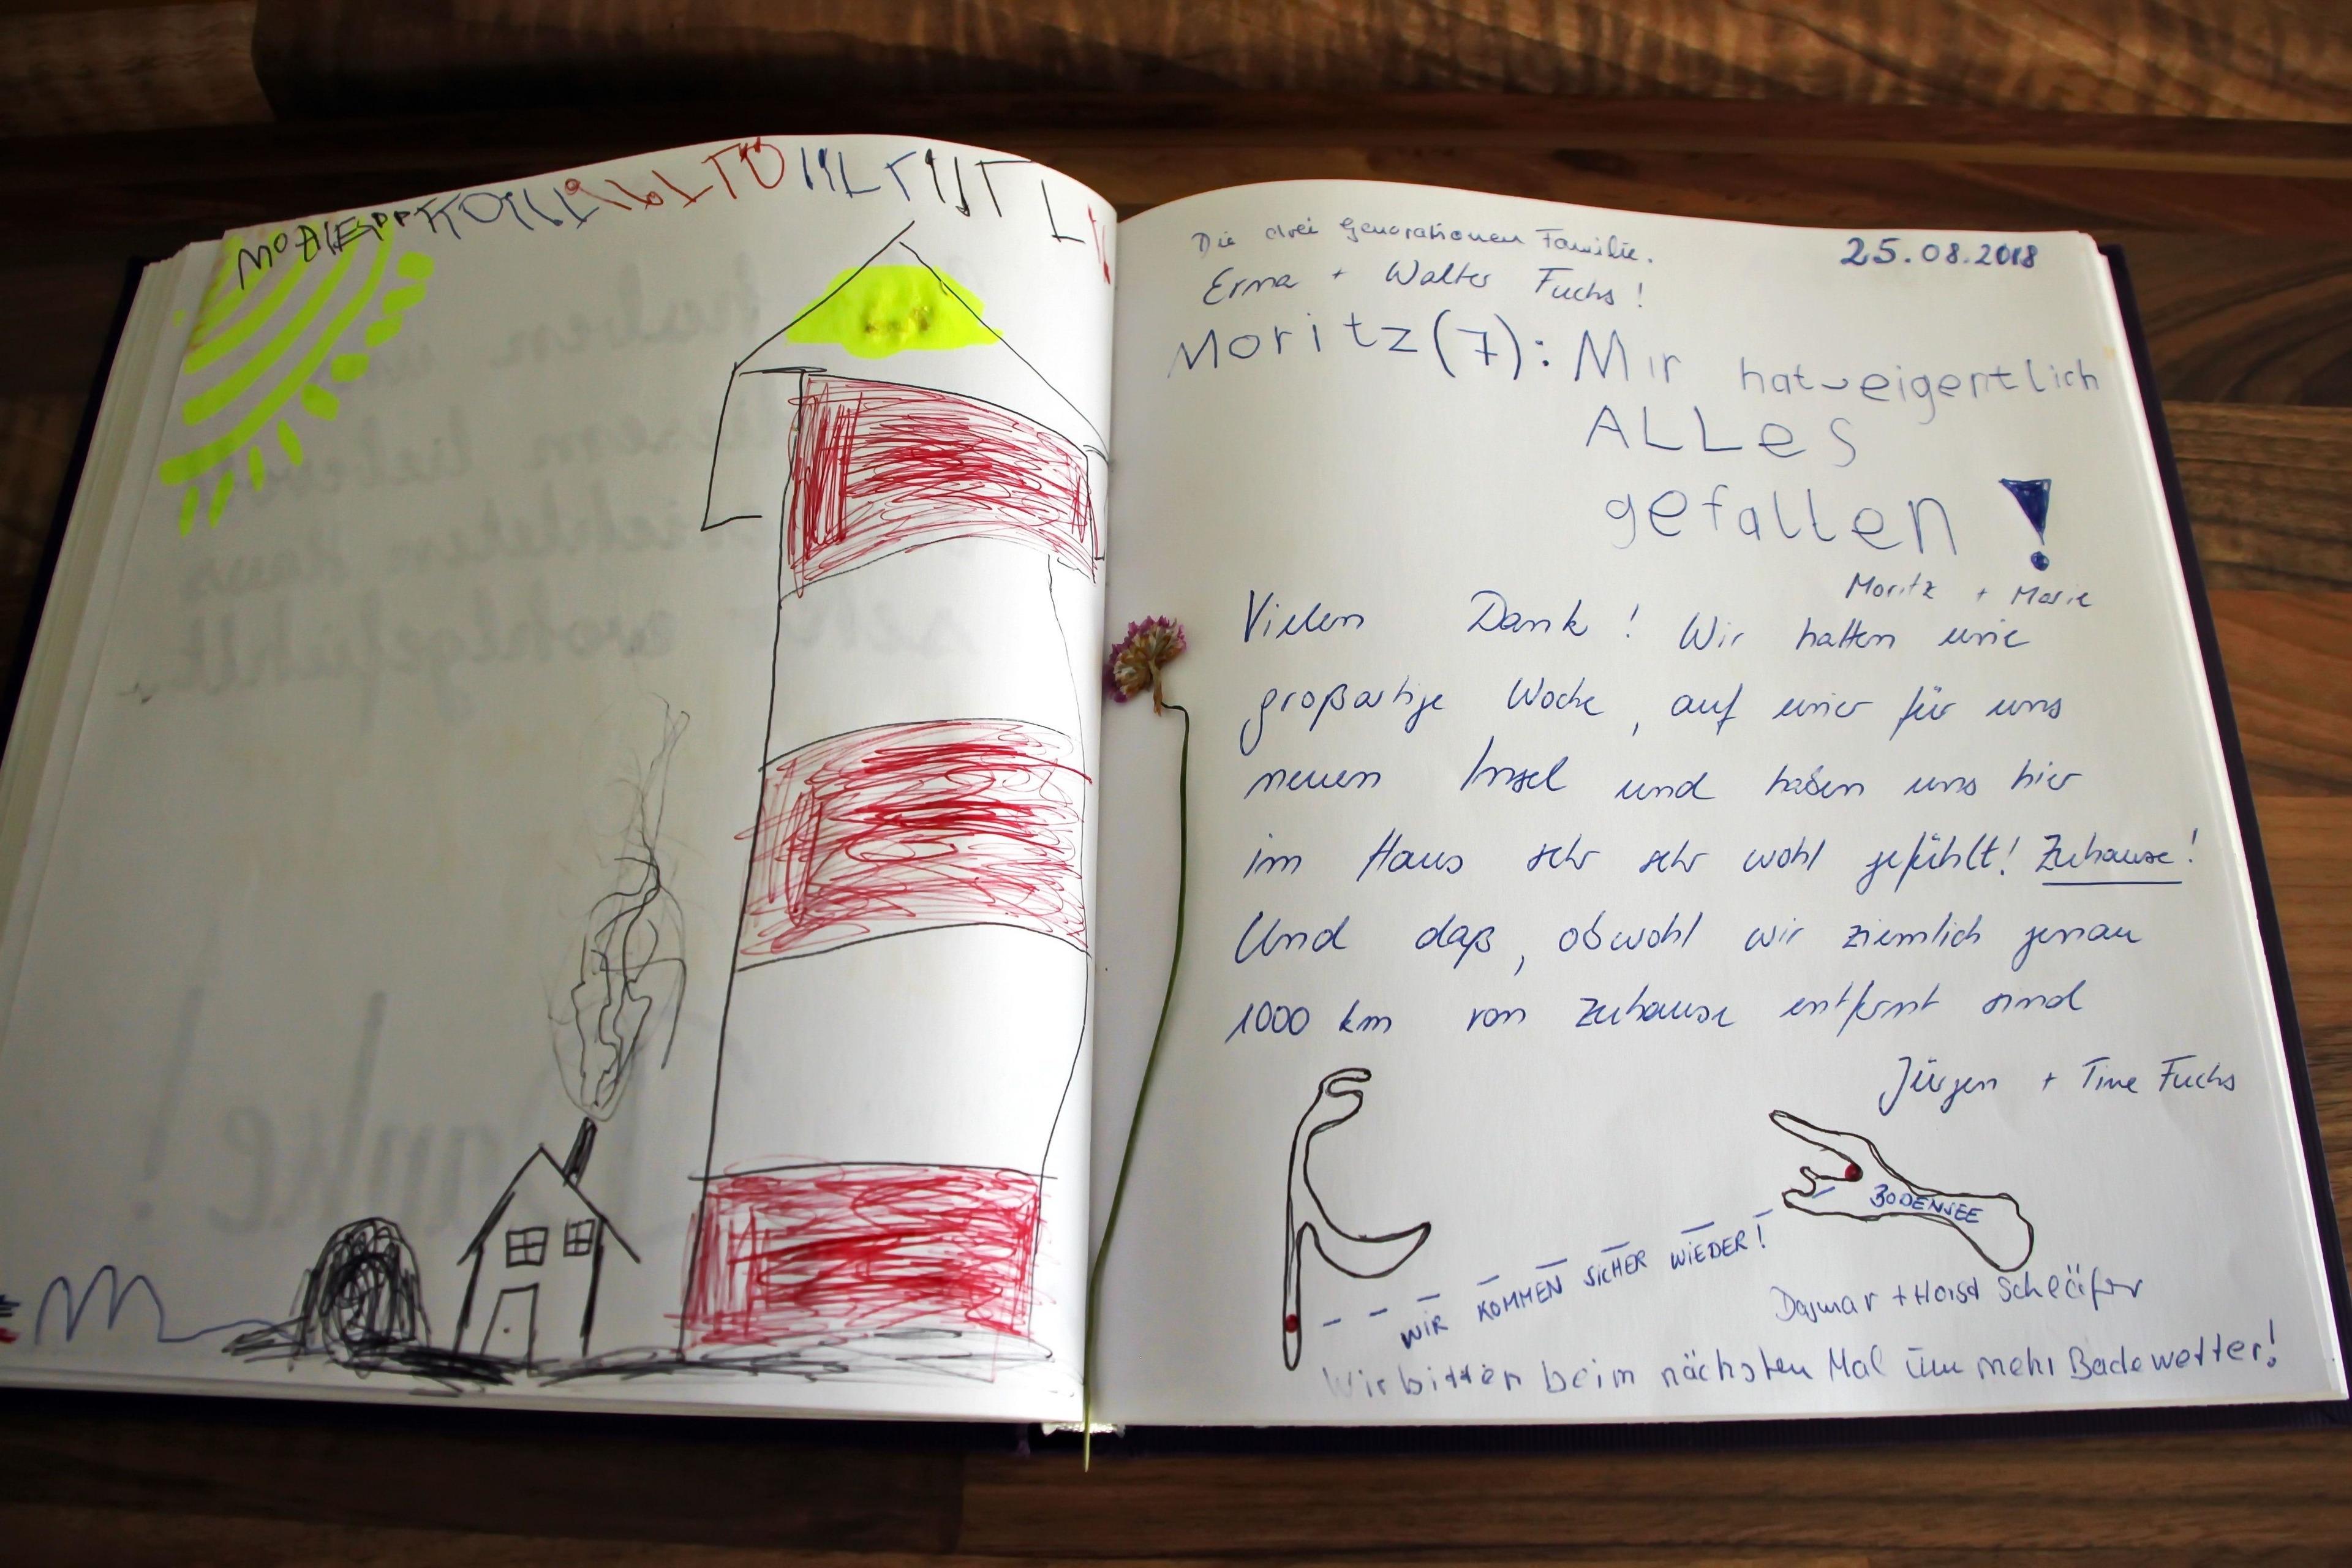 Die drei Generationen Familie.
25.08.2018
Erma + Walter Fuchs!
Moritz (7): Mir hat eigentlich
ALLes
gefallen!
Moritz + Marie
Vielen Dank! Wir hatten eine
großartige Woche, auf einer für uns
neuen Insel und haben uns hier
im Haus sehr sehr wohl gefühlt! Zuhause!
Und daß, obwohl wir ziemlich genau
1000 km von Zuhause entfernt sind
Jürgen + Tine Fuchs
BODENSEE
WIR KOMMEN SICHER WIEDER!
Dagmar + Horst Schläfer
Wir bitten beim nächsten Mal um mehr Badewetter!
haben
diesem lieben
Haus
sehr wohlgefühlt.
Danke!